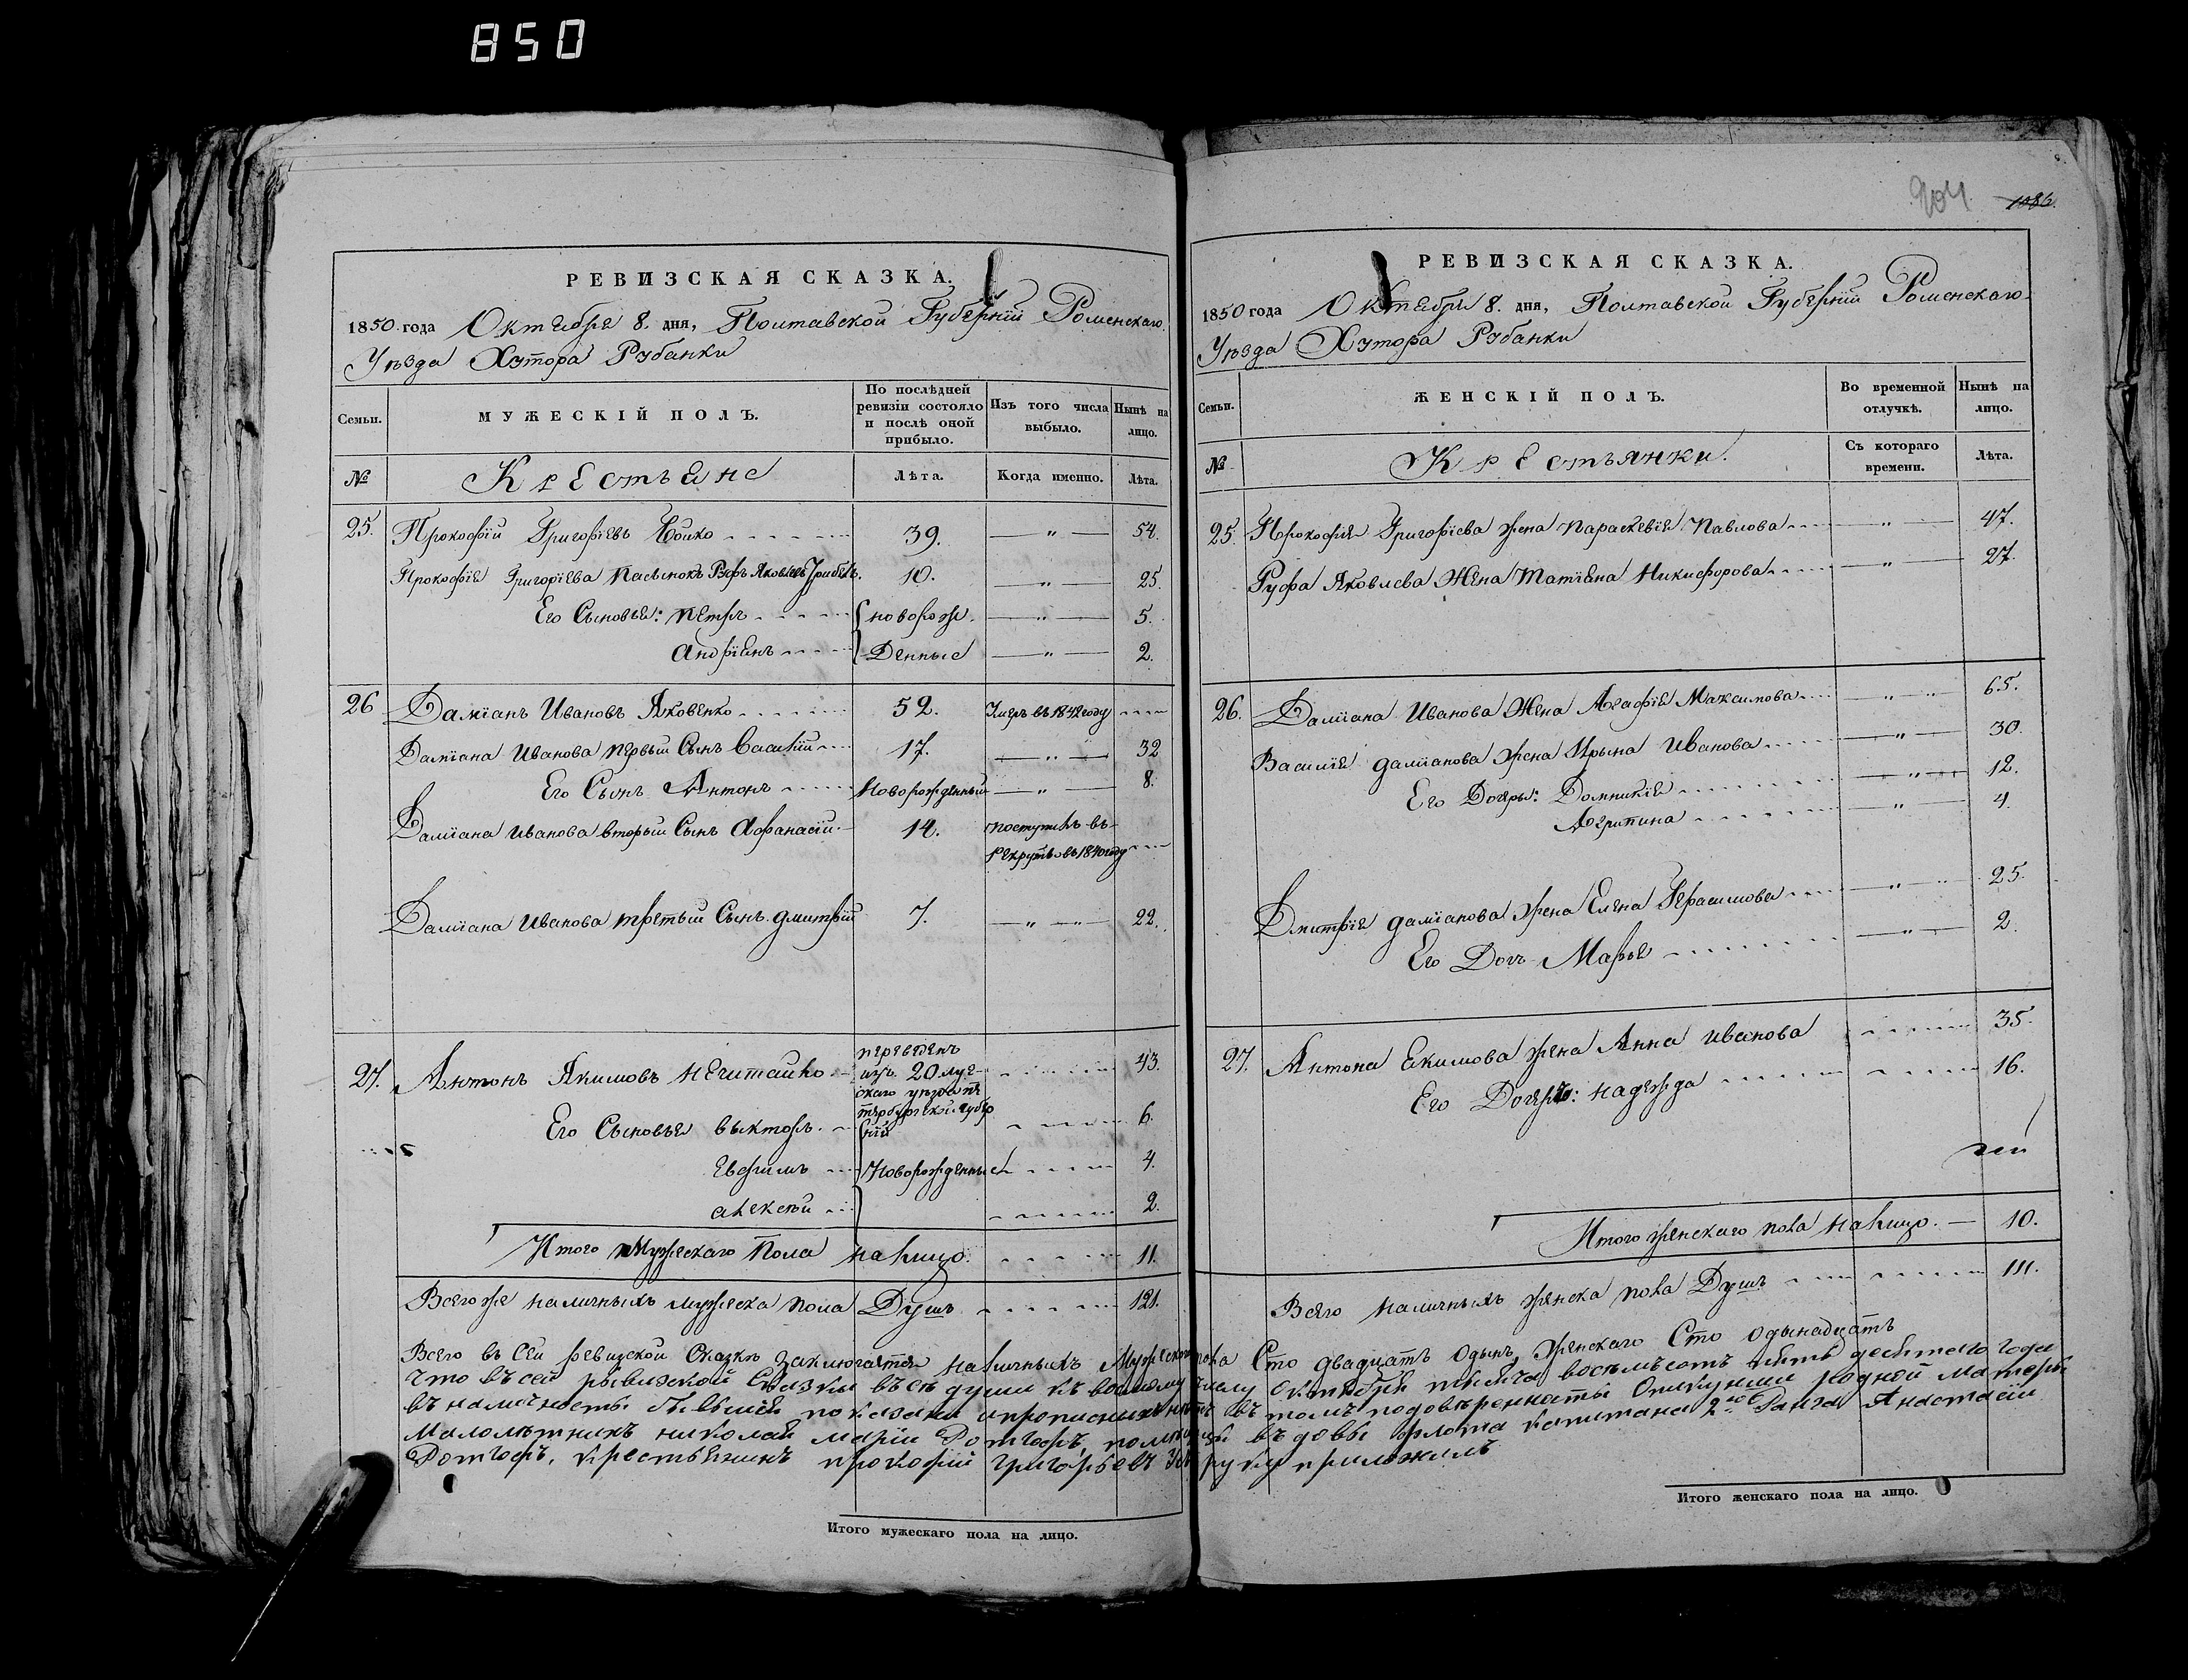 850
РЕВИЗСКАЯ СКАЗКА.
1850 года Октября 8. дня, Полтавской Губерніи Роменскаго
Уѣзда Хутора Рубанки
Семьи. МУЖЕСКІЙ ПОЛЪ. По послѣдней ревизіи состояло и послѣ оной прибыло. Изъ того числа выбыло. Нынѣ на лицо.
№ Крестьяне Лѣта. Когда именно. Лѣта.
25. Прокофій Григорьевъ 39. — " — 54.
Прокофія Григоріева пасынокъ Руфъ Яковлевъ 10. — " — 25.
Его Сыновья: Петръ новорож- — " — 5.
Андріянъ денные — " — 2.
26 Даміанъ Ивановъ Яковенко 52. Умеръ въ 1842 году
Даміана Иванова первый Сынъ Василій 17. — " — 32
Его Сынъ Антонъ Новорожденный — " — 8.
Даміана Иванова вторый Сынъ Афанасій 14. поступилъ въ
рекруты въ 1840 году
Даміана Иванова третый Сынъ Дмитрій 7. — " — 22.
27. Антонъ Якимовъ Нечитайло переведенъ 43.
изъ
скаго уѣзда пе
тербургской губер
ніи
Его Сыновья Выкторъ 6.
Евфимъ Новорожденные 4.
Алексѣй 2.
Итого Мужескаго Пола налицо. 11.
Всего же наличныхъ мужеска пола Душъ 121.
204 1086.
РЕВИЗСКАЯ СКАЗКА.
1850 года Октября 8. дня, Полтавской Губерніи Роменскаго
Уѣзда Хутора Рубанки
Семьи. ЖЕНСКІЙ ПОЛЪ. Во временной отлучкѣ. Нынѣ на лицо.
№ Крестьянки. Съ котораго времени. Лѣта.
25. Прокофія Григоріева жена Параскевія Павлова — " — 47.
Руфа Яковлева Жена Татіяна Никифорова — " — 27.
26. Даміана Иванова Жена Агафія Максимова — " — 65.
Василія Даміанова жена Ирына Иванова — " — 30.
Его Дочеры: Домникія — " — 12.
Агрипина " 4.
Дмитрія Даміанова жена Елена Герасимова — " — 25.
Его Дочь Марья — " — 2.
27. Антона Екимова жена Анна Иванова 35.
Его Дочерь: Надежда 16.
Итого женскаго пола налицо. — 10.
Всего наличныхъ женска пола Душъ 111.
Всего въ сей ревизской Сказкѣ заключается наличныхъ Мужескаго пола Сто двадцать одынъ, женскаго Сто одынадцать
Что въ сей рывизской Сказкы въсѣ души къ восмому числу октября тысяча восемьсотъ пять десятого года
въ наличносты бывшія показаны и прописныхъ нѣтъ въ томъ подовѣренносты Опикунши родной матери
Малолѣтныхъ Николай Маріи Ротгофъ, помѣщицы въдовы флота капитана 2го Ранга Анастасіи
Ротгофъ, крестьянинъ Прокофій Григорьевъ руку приложилъ
Итого мужескаго пола на лицо.
Итого женскаго пола на лицо.